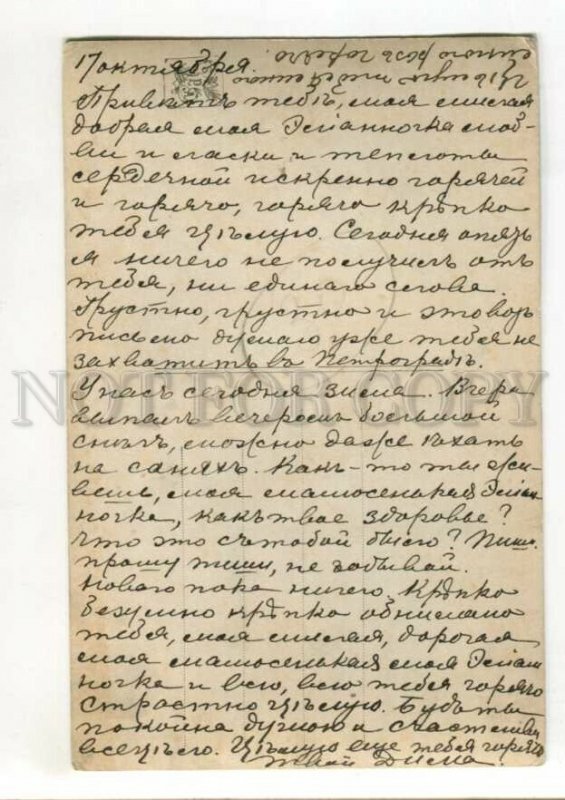 17 октября.
Привѣтъ тебѣ, моя милая
добрая моя
ви и ласки и теплоты
сердечной искренно горячей
и горячо, горячо крѣпко
тебя цѣлую. Сегодня опять
я ничего не получилъ отъ
тебя, ни единаго слова.
Грустно, грустно и это
письмо думаю уже тебя не
захватитъ въ Петроградѣ.
У насъ сегодня зима. Вчера
выпалъ вечеромъ большой
снѣгъ, можно даже ѣхать
на саняхъ. Какъ-то ты жи-
вешь, моя малюсенькая
ночка, какъ твое здоровье?
Что это съ тобой было? Пиши,
прошу пиши, не забывай.
Новаго пока ничего. Крѣпко
безумно крѣпко обнимаю
тебя, моя милая, дорогая
моя малюсенькая моя
ночка и всю, всю тебя горячо
страстно цѣлую. Будь ты
покойна душою и счастлива
всецѣло. Цѣлую еще тебя горячо
твой Дима.
NOT FOR COPY